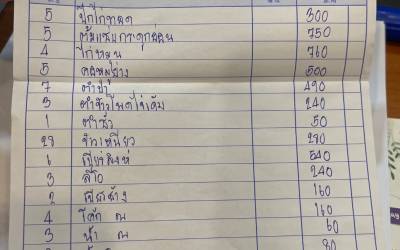 5 ปีกไก่ทอด 300
5 ต้มแซ่บกระดูกอ่อน 750
4 ไก่หมุน 760
5 คอหมูย่าง 500
7 ตำปู 490
3 ตำข้าวโพดไข่เค็ม 240
1 ตำซั่ว 50
28 ข้าวเหนียว 280
6 เบียร์สิงห์ 540
3 ลีโอ 240
2 เบียร์ช้าง 160
4 โค้ก ณ 160
3 น้ำ ณ 60
80